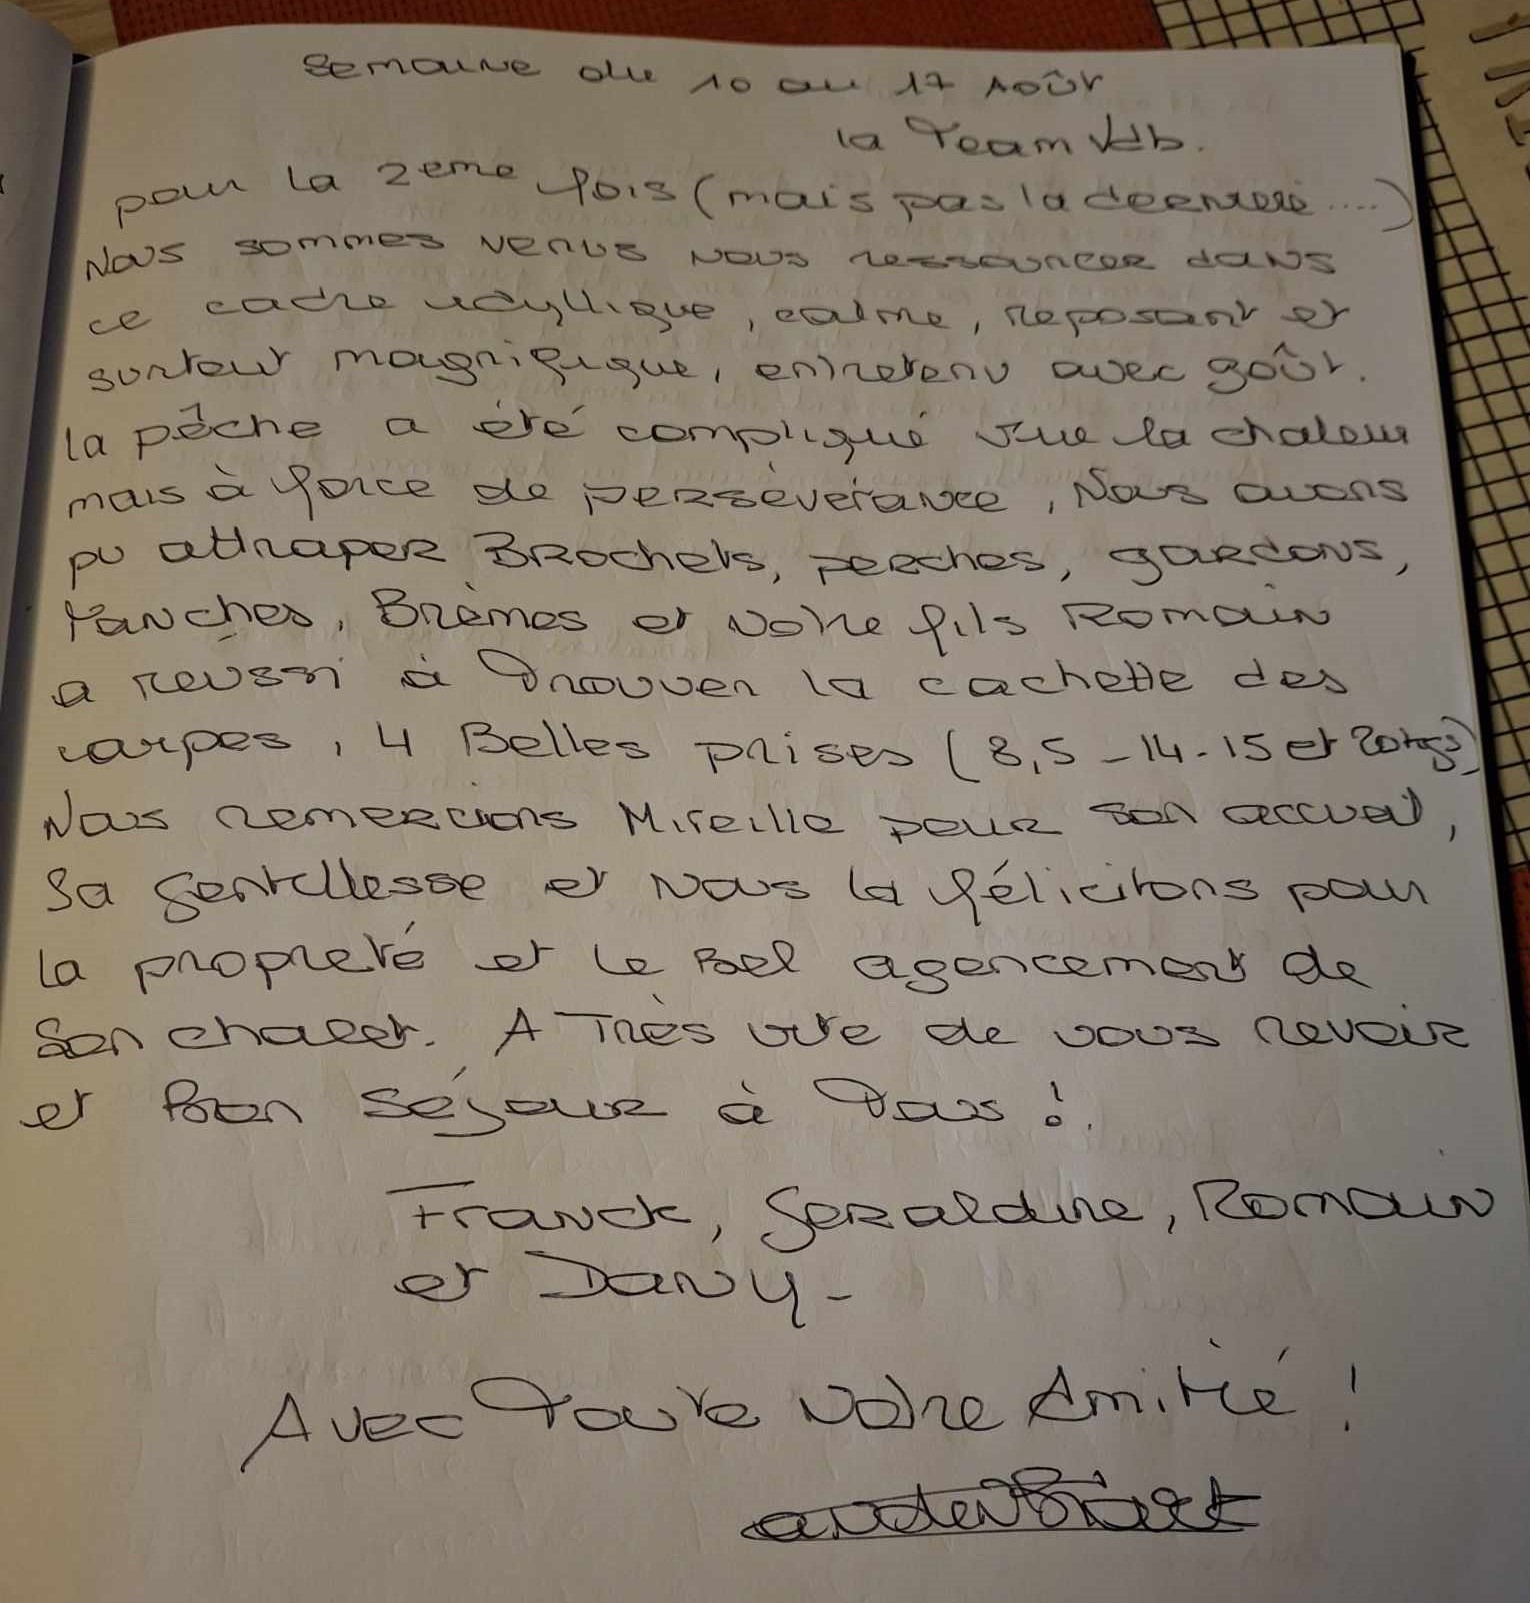 Semaine du 10 au 17 Août
la Team Vdb.
pour la 2eme fois (mais pas la dernière ....)
Nous sommes venus nous ressourcer dans
ce cadre idyllique, calme, reposant et
surtout magnifique, entretenu avec goût.
la pêche a été compliqué vue la chaleur
mais à force de perséverance, Nous avons
pu attraper Brochets, perches, gardons,
tanches, Brèmes et notre fils Romain
a reussi à Trouver la cachette des
carpes, 4 Belles prises (8,5 - 14 - 15 et 20 kgs)
Nous remercions Mireille pour son accueil,
Sa gentillesse et Nous la félicitons pour
la propreté et le Bel agencement de
Son chalet. A Très vite de vous revoir
et Bon Séjour à Tous !.
Franck, Geraldine, Romain
et Dany -
Avec Toute Notre Amitié !